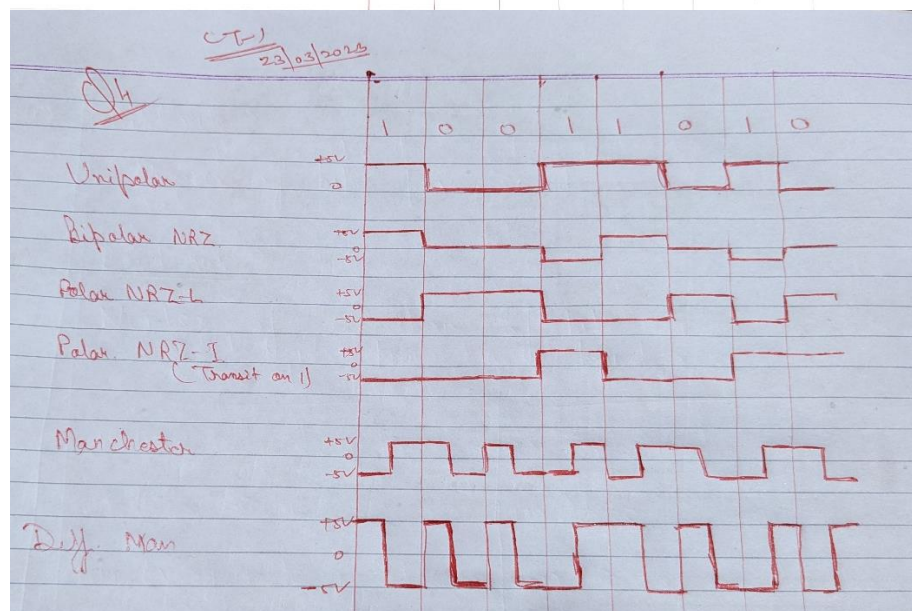 (T-1)
23/03/2023
Q4
1 0 0 1 1 0 1 0
Unipolar
+5V
0
Bipolar NRZ
+5V
0
-5V
Polar NRZ-L
+5V
0
-5V
Polar NRZ-I
(Transit on 1)
+5V
0
-5V
Manchester
+5V
0
-5V
Diff. Man
+5V
0
-5V